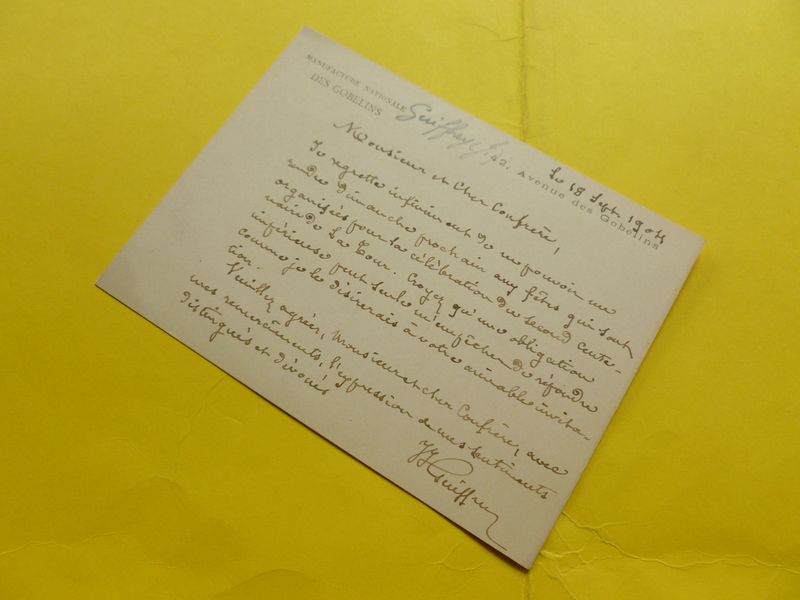 MANUFACTURE NATIONALE
DES GOBELINS
Guiffrey J.
42, Avenue des Gobelins
Le 18 Sept. 1904
Monsieur et Cher Confrère,
Je regrette infiniment de ne pouvoir me
rendre dimanche prochain aux fêtes qui sont
organisées pour la célébration du second cente-
naire de La Tour. Croyez qu'une obligation
impérieuse peut seule m'empêcher de répondre
comme je le désirerais à votre aimable invita-
tion.
Veuillez agréer, Monsieur et cher Confrère, avec
mes remerciements, l'expression de mes sentiments
distingués et dévoués
JJ Guiffrey